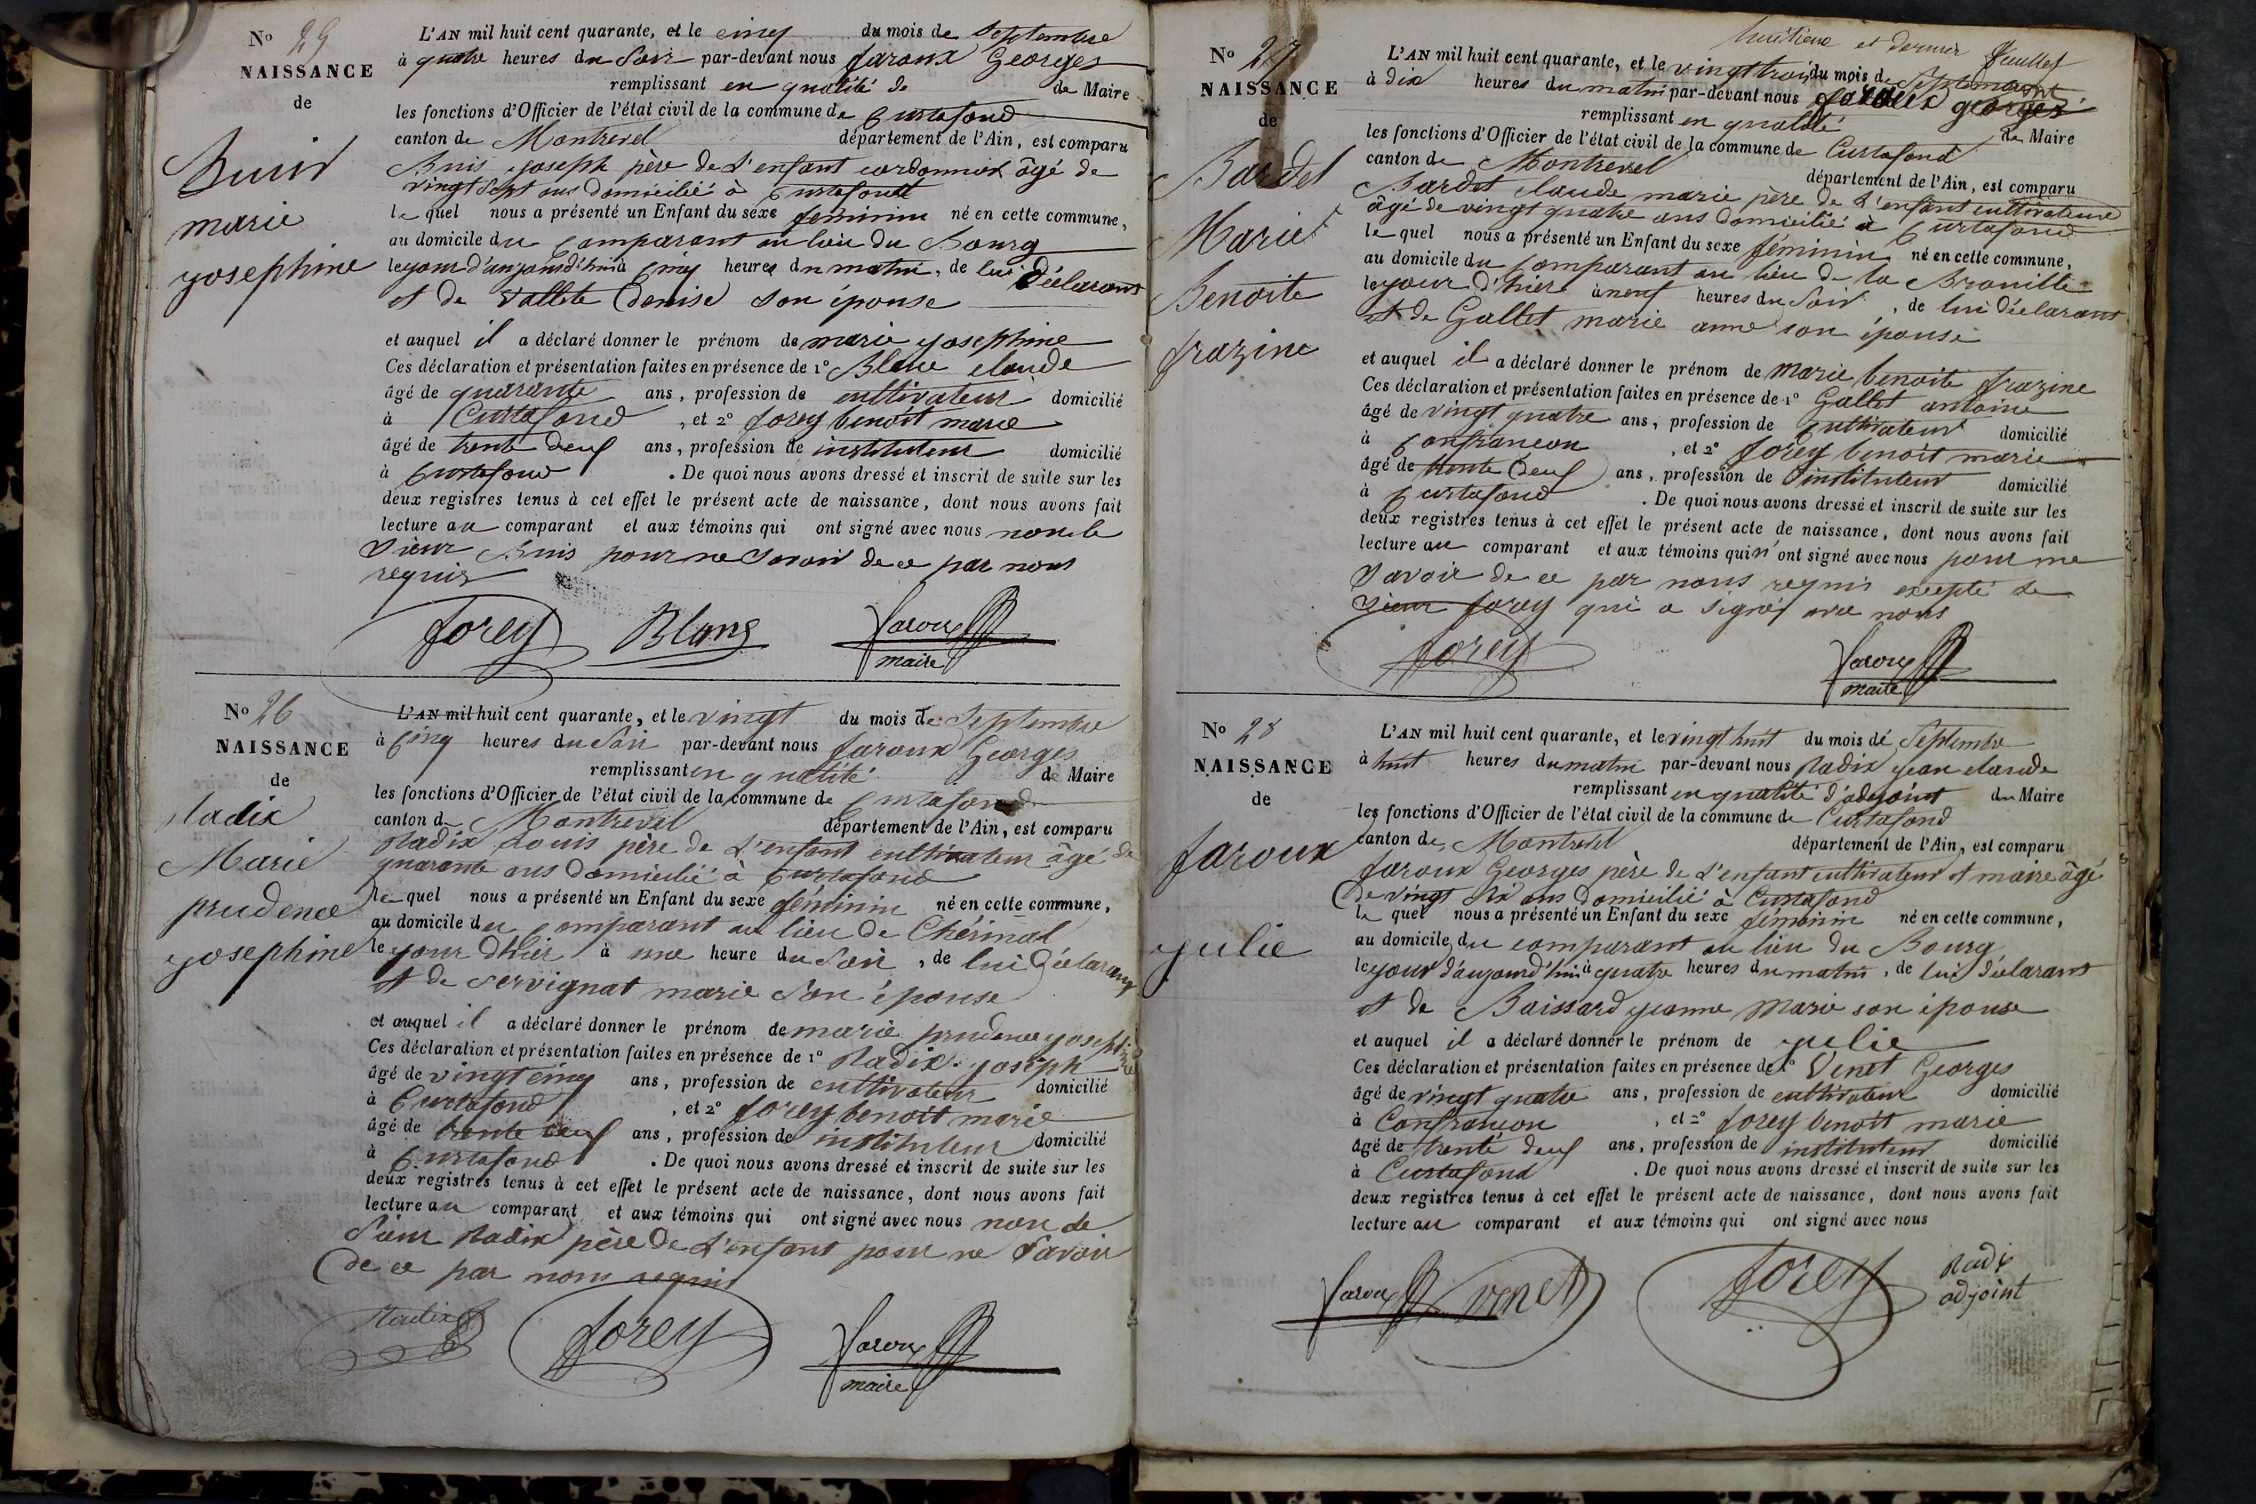 No 25
NAISSANCE
de
Buis
marie
josephine
L'AN mil huit cent quarante, et le cinq du mois de Septembre
à quatre heures du Soir par-devant nous faroux Georges
remplissant en qualité de de Maire
les fonctions d'Officier de l'état civil de la commune de Curtafond
canton de Montrevel département de l'Ain, est comparu
Buis joseph père de l'enfant cordonnier âgé de
vingt Sept ans domicilié à Curtafond
le quel nous a présenté un Enfant du sexe féminin né en cette commune,
au domicile du comparant au lieu du Bourg
le jour d'aujourd'hui à Cinq heures du matin, de lui Déclarant
et de Vallete Denise son épouse
et auquel il a déclaré donner le prénom de marie josephine
Ces déclaration et présentation faites en présence de 1° Blanc claude
âgé de quarante ans, profession de cultivateur domicilié
à Curtafond, et 2° forey benoit marie
âgé de trente deux ans, profession de instituteur domicilié
à Curtafond. De quoi nous avons dressé et inscrit de suite sur les
deux registres tenus à cet effet le présent acte de naissance, dont nous avons fait
lecture au comparant et aux témoins qui ont signé avec nous non le
Sieur Buis pour ne Savoir de ce par nous
requis
forey Blanc faroux
maire
No 26
NAISSANCE
de
Radix
Marie
prudence
josephine
L'AN mil huit cent quarante, et le vingt du mois de Septembre
à Cinq heures du Soir par-devant nous faroux Georges
remplissant en qualité de Maire
les fonctions d'Officier de l'état civil de la commune de Curtafond
canton de Montrevel département de l'Ain, est comparu
Radix Louis père de l'enfant cultivateur âgé de
quarante ans domicilié à Curtafond
le quel nous a présenté un Enfant du sexe féminin né en cette commune,
au domicile du comparant au lieu de Chérinal
le jour d'hier à une heure du Soir, de lui Déclarant
et de Servignat marie Son épouse
et auquel il a déclaré donner le prénom de marie prudence josephine
Ces déclaration et présentation faites en présence de 1° Radix joseph
âgé de vingt cinq ans, profession de cultivateur domicilié
à Curtafond, et 2° forey benoit marie
âgé de trente deux ans, profession de instituteur domicilié
à Curtafond. De quoi nous avons dressé et inscrit de suite sur les
deux registres tenus à cet effet le présent acte de naissance, dont nous avons fait
lecture au comparant et aux témoins qui ont signé avec nous non le
Sieur Radix père de l'enfant pour ne Savoir
de ce par nous requis
Radix forey faroux
maire
huitième et dernier feuillet
No 27
NAISSANCE
de
Bardet
Marie
Benoite
frazine
L'AN mil huit cent quarante, et le vingt trois du mois de Septembre
à dix heures du matin par-devant nous faroux georges
remplissant en qualité de Maire
les fonctions d'Officier de l'état civil de la commune de Curtafond
canton de Montrevel département de l'Ain, est comparu
Bardet claude marie père de l'enfant cultivateur
âgé de vingt quatre ans domicilié à Curtafond
le quel nous a présenté un Enfant du sexe féminin né en cette commune,
au domicile du comparant au lieu de la Brouille
le jour d'hier à neuf heures du Soir, de lui déclarant
et de Gallet marie anne son épouse
et auquel il a déclaré donner le prénom de marie benoite frazine
Ces déclaration et présentation faites en présence de 1° Gallet antoine
âgé de vingt quatre ans, profession de cultivateur domicilié
à Confrancon, et 2° forey benoit marie
âgé de trente deux ans, profession de instituteur domicilié
à Curtafond. De quoi nous avons dressé et inscrit de suite sur les
deux registres tenus à cet effet le présent acte de naissance, dont nous avons fait
lecture au comparant et aux témoins qui n'ont signé avec nous pour ne
Savoir de ce par nous requis excepté le
Sieur forey qui a signé avec nous
forey faroux
maire
No 28
NAISSANCE
de
faroux
julie
L'AN mil huit cent quarante, et le vingt huit du mois de Septembre
à huit heures du matin par-devant nous Radix jean claude
remplissant en qualité d'adjoint du Maire
les fonctions d'Officier de l'état civil de la commune de Curtafond
canton de Montrevel département de l'Ain, est comparu
faroux Georges père de l'enfant cultivateur et maire âgé
de vingt Six ans domicilié à Curtafond
le quel nous a présenté un Enfant du sexe féminin né en cette commune,
au domicile du comparant au lieu du Bourg
le jour d'aujourd'hui à quatre heures du matin, de lui déclarant
et de Boissard jeanne Marie son épouse
et auquel il a déclaré donner le prénom de julie
Ces déclaration et présentation faites en présence de 1° Venet Georges
âgé de vingt quatre ans, profession de cultivateur domicilié
à Confrancon, et 2° forey benoit marie
âgé de trente deux ans, profession de instituteur domicilié
à Curtafond. De quoi nous avons dressé et inscrit de suite sur les
deux registres tenus à cet effet le présent acte de naissance, dont nous avons fait
lecture au comparant et aux témoins qui ont signé avec nous
faroux venet forey Radix
adjoint